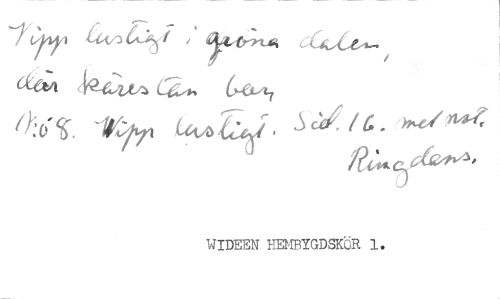 Vipp lustigt i gröna dalen,
där kärestan bor,
N:o 8. Vipp lustigt. Sid. 16. mel not.
Ringdans.
WIDEEN HEMBYGDSKÖR 1.